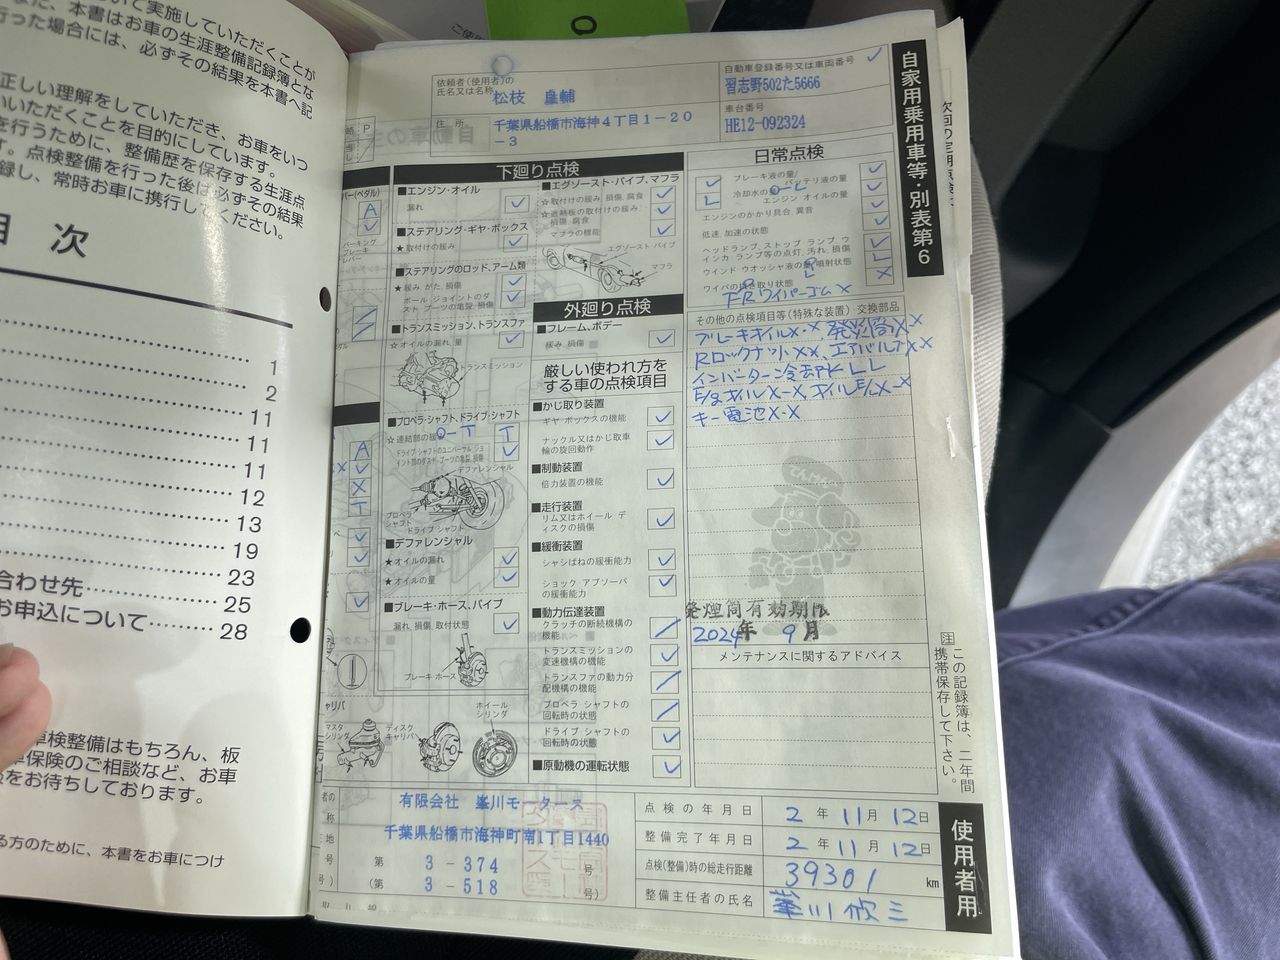 いて実施していただくことが
また、本書はお車の生涯整備記録簿とな
行った場合には、必ずその結果を本書へ記
正しい理解をしていただき、お車をいつ
いただくことを目的にしています。
を行うために、整備歴を保存する生涯点
す。点検整備を行った後は必ずその結果
録し、常時お車に携行してください。
目 次
1
2
11
11
11
12
13
19
23
合わせ先 25
お申込について 28
車検整備はもちろん、板
車保険のご相談など、お車
をお待ちしております。
る方のために、本書をお車につけ
依頼者(使用者)の
氏名又は名称
松枝
輔
住所
千葉県船橋市海神4丁目1-20
-3
自動車登録番号又は車両番号
習志野502た5666
車台番号
HE12-092324
自家用乗用車等・別表第6
下廻り点検
■エンジン・オイル
漏れ
■ステアリング・ギヤ・ボックス
★取付けの緩み
■ステアリングのロッド、アーム類
★緩み、がた、損傷
ボール ジョイントのダ
スト ブーツの亀裂、損傷
■トランスミッション、トランスファ
☆オイルの漏れ、量
トランスミッション
■プロペラ・シャフト、ドライブ・シャフト
☆連結部の緩み
ドライブ・シャフトのユニバーサル ジョ
イント部のダスト・ブーツの亀裂、損傷
デファレンシャル
プロペラ
シャフト
ドライブ シャフト
■デファレンシャル
★オイルの漏れ
★オイルの量
■ブレーキ・ホース、パイプ
漏れ、損傷、取付状態
ブレーキ ホース
マスタ
シリンダ
ディスク
キャリパ
ホイール
シリンダ
■エグゾースト・パイプ、マフラ
☆取付けの緩み、損傷、腐食
☆遮熱板の取付けの緩み、
損傷、腐食
マフラの機能
エグゾースト パイプ
マフラ
外廻り点検
■フレーム、ボデー
緩み、損傷
厳しい使われ方を
する車の点検項目
■かじ取り装置
ギヤ・ボックスの機能
ナックル又はかじ取車
輪の旋回動作
■制動装置
倍力装置の機能
■走行装置
リム又はホイール デ
ィスクの損傷
■緩衝装置
シャシばねの緩衝能力
ショック アブソーバ
の緩衝能力
■動力伝達装置
クラッチの断続機構の
機能
トランスミッションの
変速機構の機能
トランスファの動力分
配機構の機能
プロペラ シャフトの
回転時の状態
ドライブ シャフトの
回転時の状態
■原動機の運転状態
日常点検
ブレーキ液の量
冷却水の量
バッテリ液の量
エンジン オイルの量
エンジンのかかり具合、異音
低速、加速の状態
ヘッドランプ、ストップ ランプ、ウ
インカ ランプ等の点灯、汚れ、損傷
ウインド ウオッシャ液の量、噴射状態
ワイパの拭き取り状態
F-RワイパーゴムX
その他の点検項目等(特殊な装置) 交換部品
ブレーキオイルX-X、発煙筒XX
RロックナットXX、エアバルブXX
インバーター冷却水LL
E/gオイルX-X、オイルE/LX-X
キー電池X-X
発煙筒有効期限
2024年 9月
メンテナンスに関するアドバイス
注 この記録簿は、二年間
携帯保存して下さい。
使用者用
有限会社 峯川モータース
千葉県船橋市海神町南1丁目1440
第 3-374 号
(第 3-518 号)
点検の年月日 2年11月12日
整備完了年月日 2年11月12日
点検(整備)時の総走行距離 39301 km
整備主任者の氏名 峯川欣三